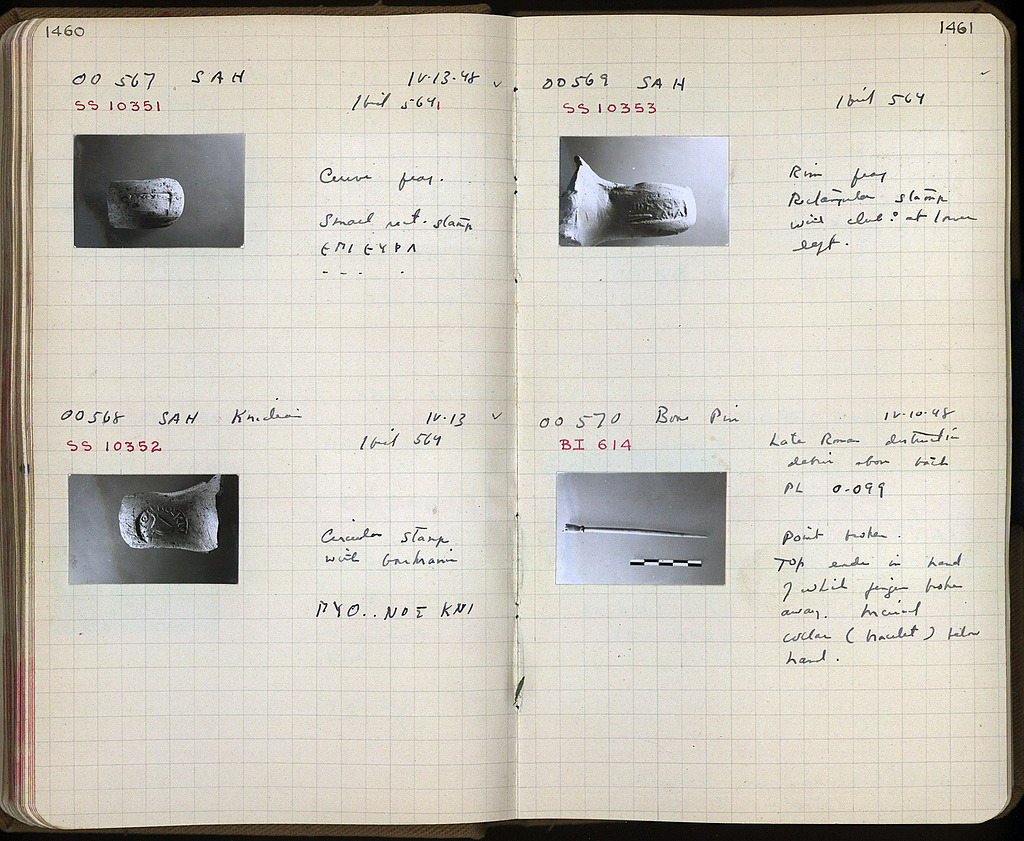 1460
OO 567 SAH IV-13-48
SS 10351
564
Curve frag.
Small rect. stamp
ΕΠΙ ΕΥΡΛ
- - - -
OO 568 SAH Knidian IV-13
SS 10352
564
Circular stamp
with bucranium
ΠΥΘ..ΝΟΣ ΚΝΙ
1461
OO 569 SAH
SS 10353
564
Rim frag
Rectangular stamp
with club: at lower
left.
OO 570 Bone Pin IV-10-48
BI 614
Late Roman destruction
debris above
PL 0.099
Point broken.
Top ends in hand
of which fingers broken
away. Incised
collar (bracelet) below
hand.